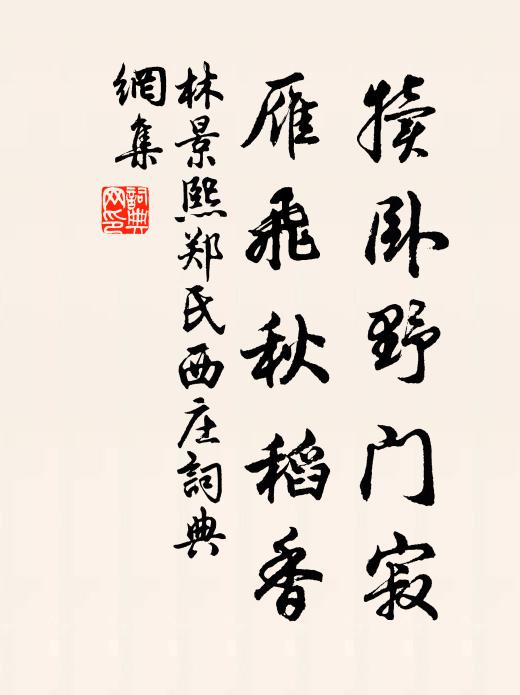 犊卧野门寂
雁飛秋稻香
林景熙郑氏西庄詞典
網集
詞典
网印